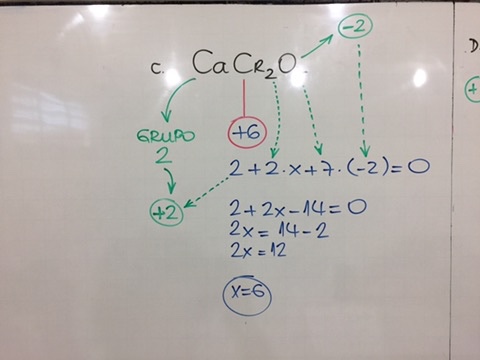 -2
C. CaCr₂O
D.
+6
GRUPO
2
+2
2+2·x+7·(-2)=0
2+2x-14=0
2x=14-2
2x=12
x=6